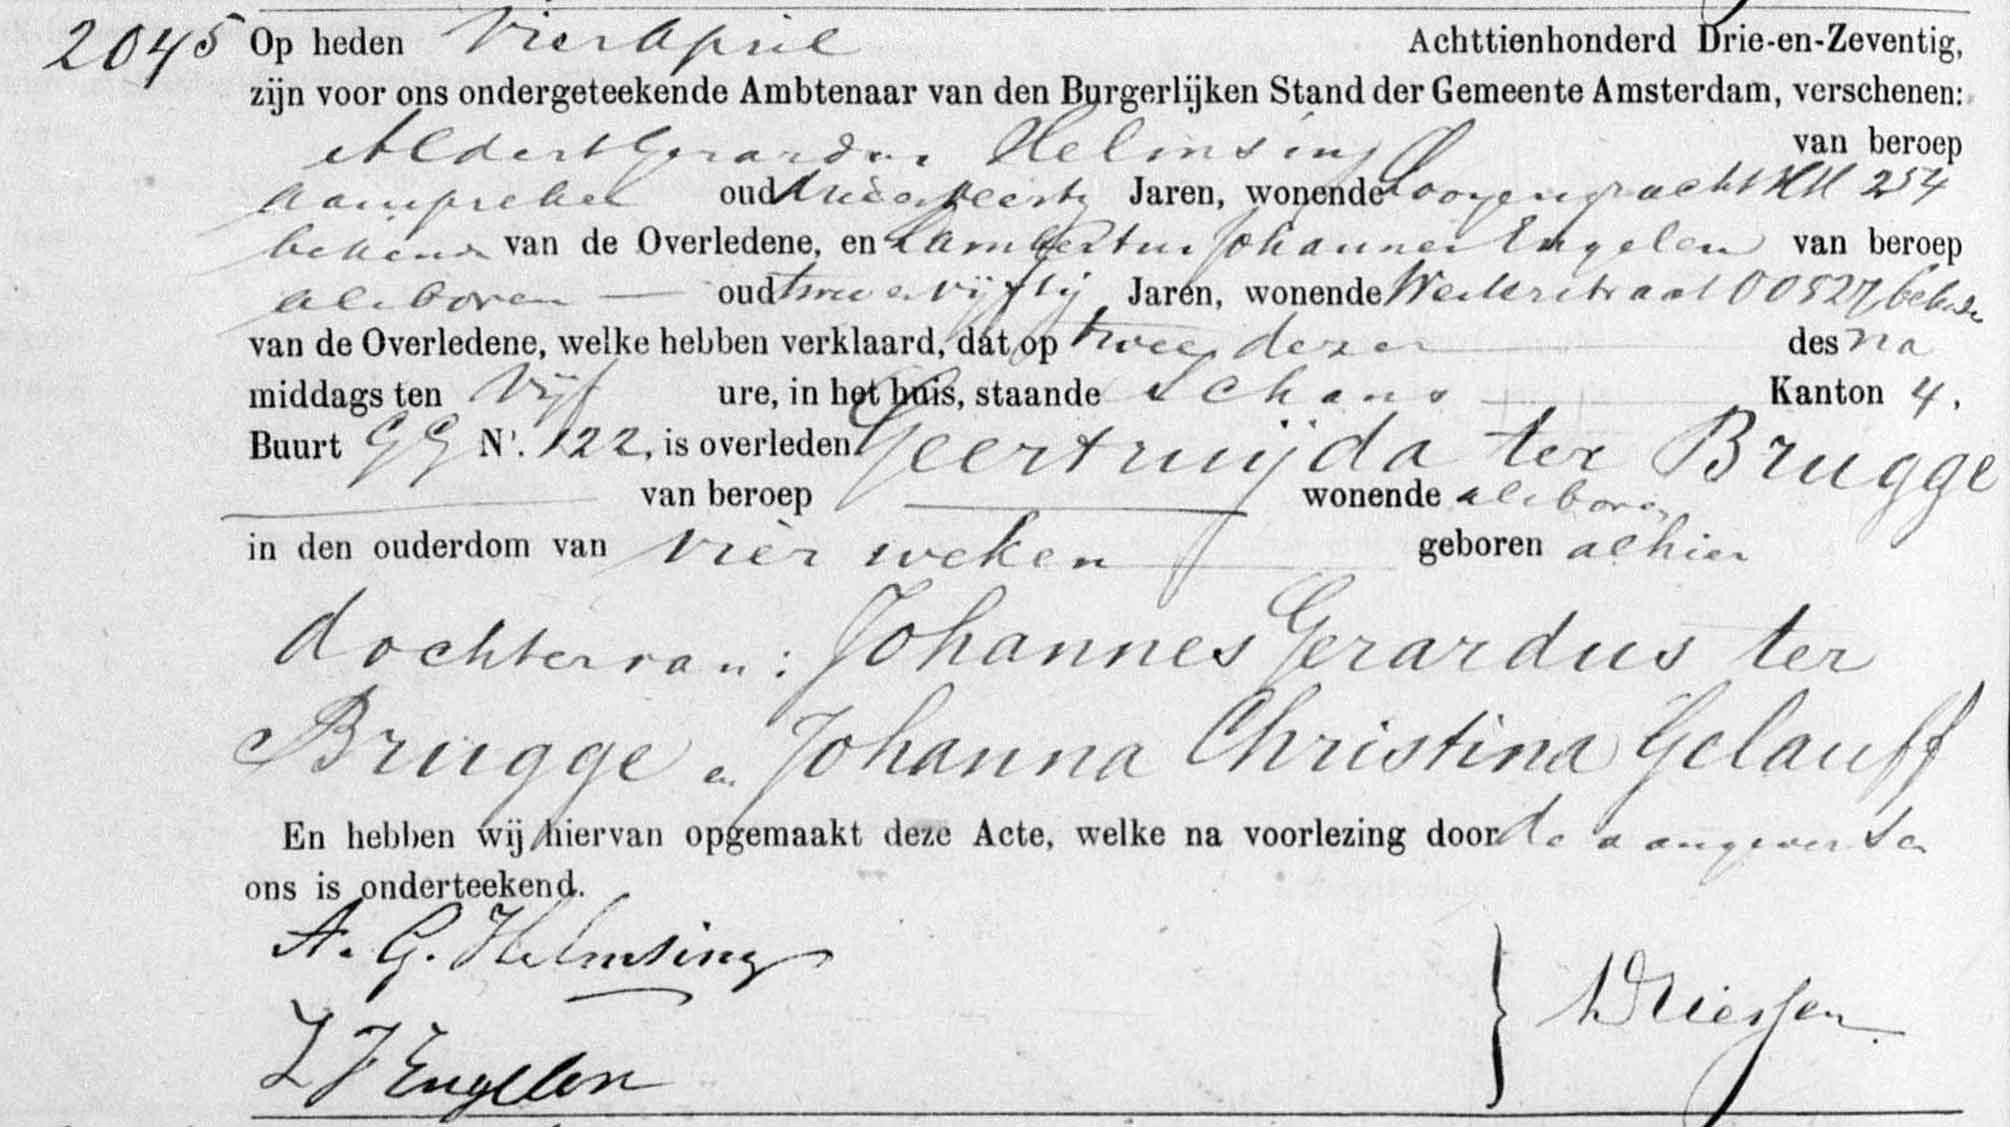 2045 Op heden Vier April Achttienhonderd Drie-en-Zeventig,
zijn voor ons ondergeteekende Ambtenaar van den Burgerlijken Stand der Gemeente Amsterdam, verschenen:
Aldert Gerardus Helmsing van beroep
aanspreker oud drieenveertig Jaren, wonende Looyersgracht KK 254
bekende van de Overledene, en Lambertus Johannes Engelen van beroep
als boven — oud twee en vijftig Jaren, wonende Weesperstraat OO 527, bekende
van de Overledene, welke hebben verklaard, dat op twee dezer des na
middags ten Vijf ure, in het huis, staande Schans Kanton 4.
Buurt GG Nr. 122, is overleden Geertruijda ter Brugge
van beroep wonende als boven
in den ouderdom van vier weken geboren alhier
dochter van: Johannes Gerardus ter
Brugge en Johanna Christina Gelauff
En hebben wij hiervan opgemaakt deze Acte, welke na voorlezing door de aangevers en
ons is onderteekend.
A. G. Helmsing
L J Engelen